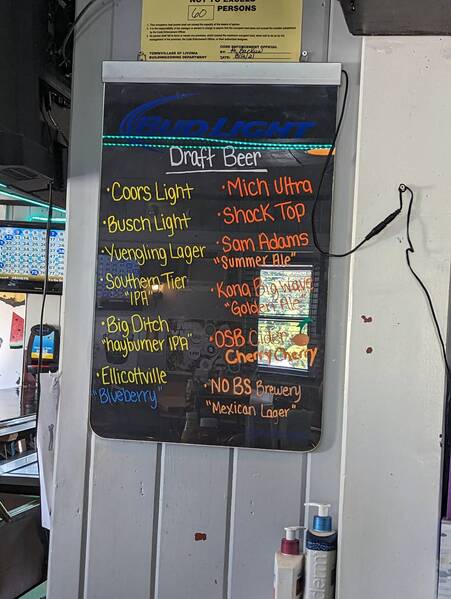 NOT TO EXCEED
60 PERSONS
TOWN/VILLAGE OF LIVONIA
BUILDING/ZONING DEPARTMENT
CODE ENFORCEMENT OFFICIAL
BY:
DATE:
BUD LIGHT
Draft Beer
•Coors Light
•Busch Light
•Yuengling Lager
•Southern Tier
"IPA"
•Big Ditch
"hayburner IPA"
•Ellicottville
"Blueberry"
•Mich Ultra
•Shock Top
•Sam Adams
"Summer Ale"
•Kona Big Wave
"Golden Ale"
•OSB Cider
Cherry Cherry
•NO BS Brewery
"Mexican Lager"
derm